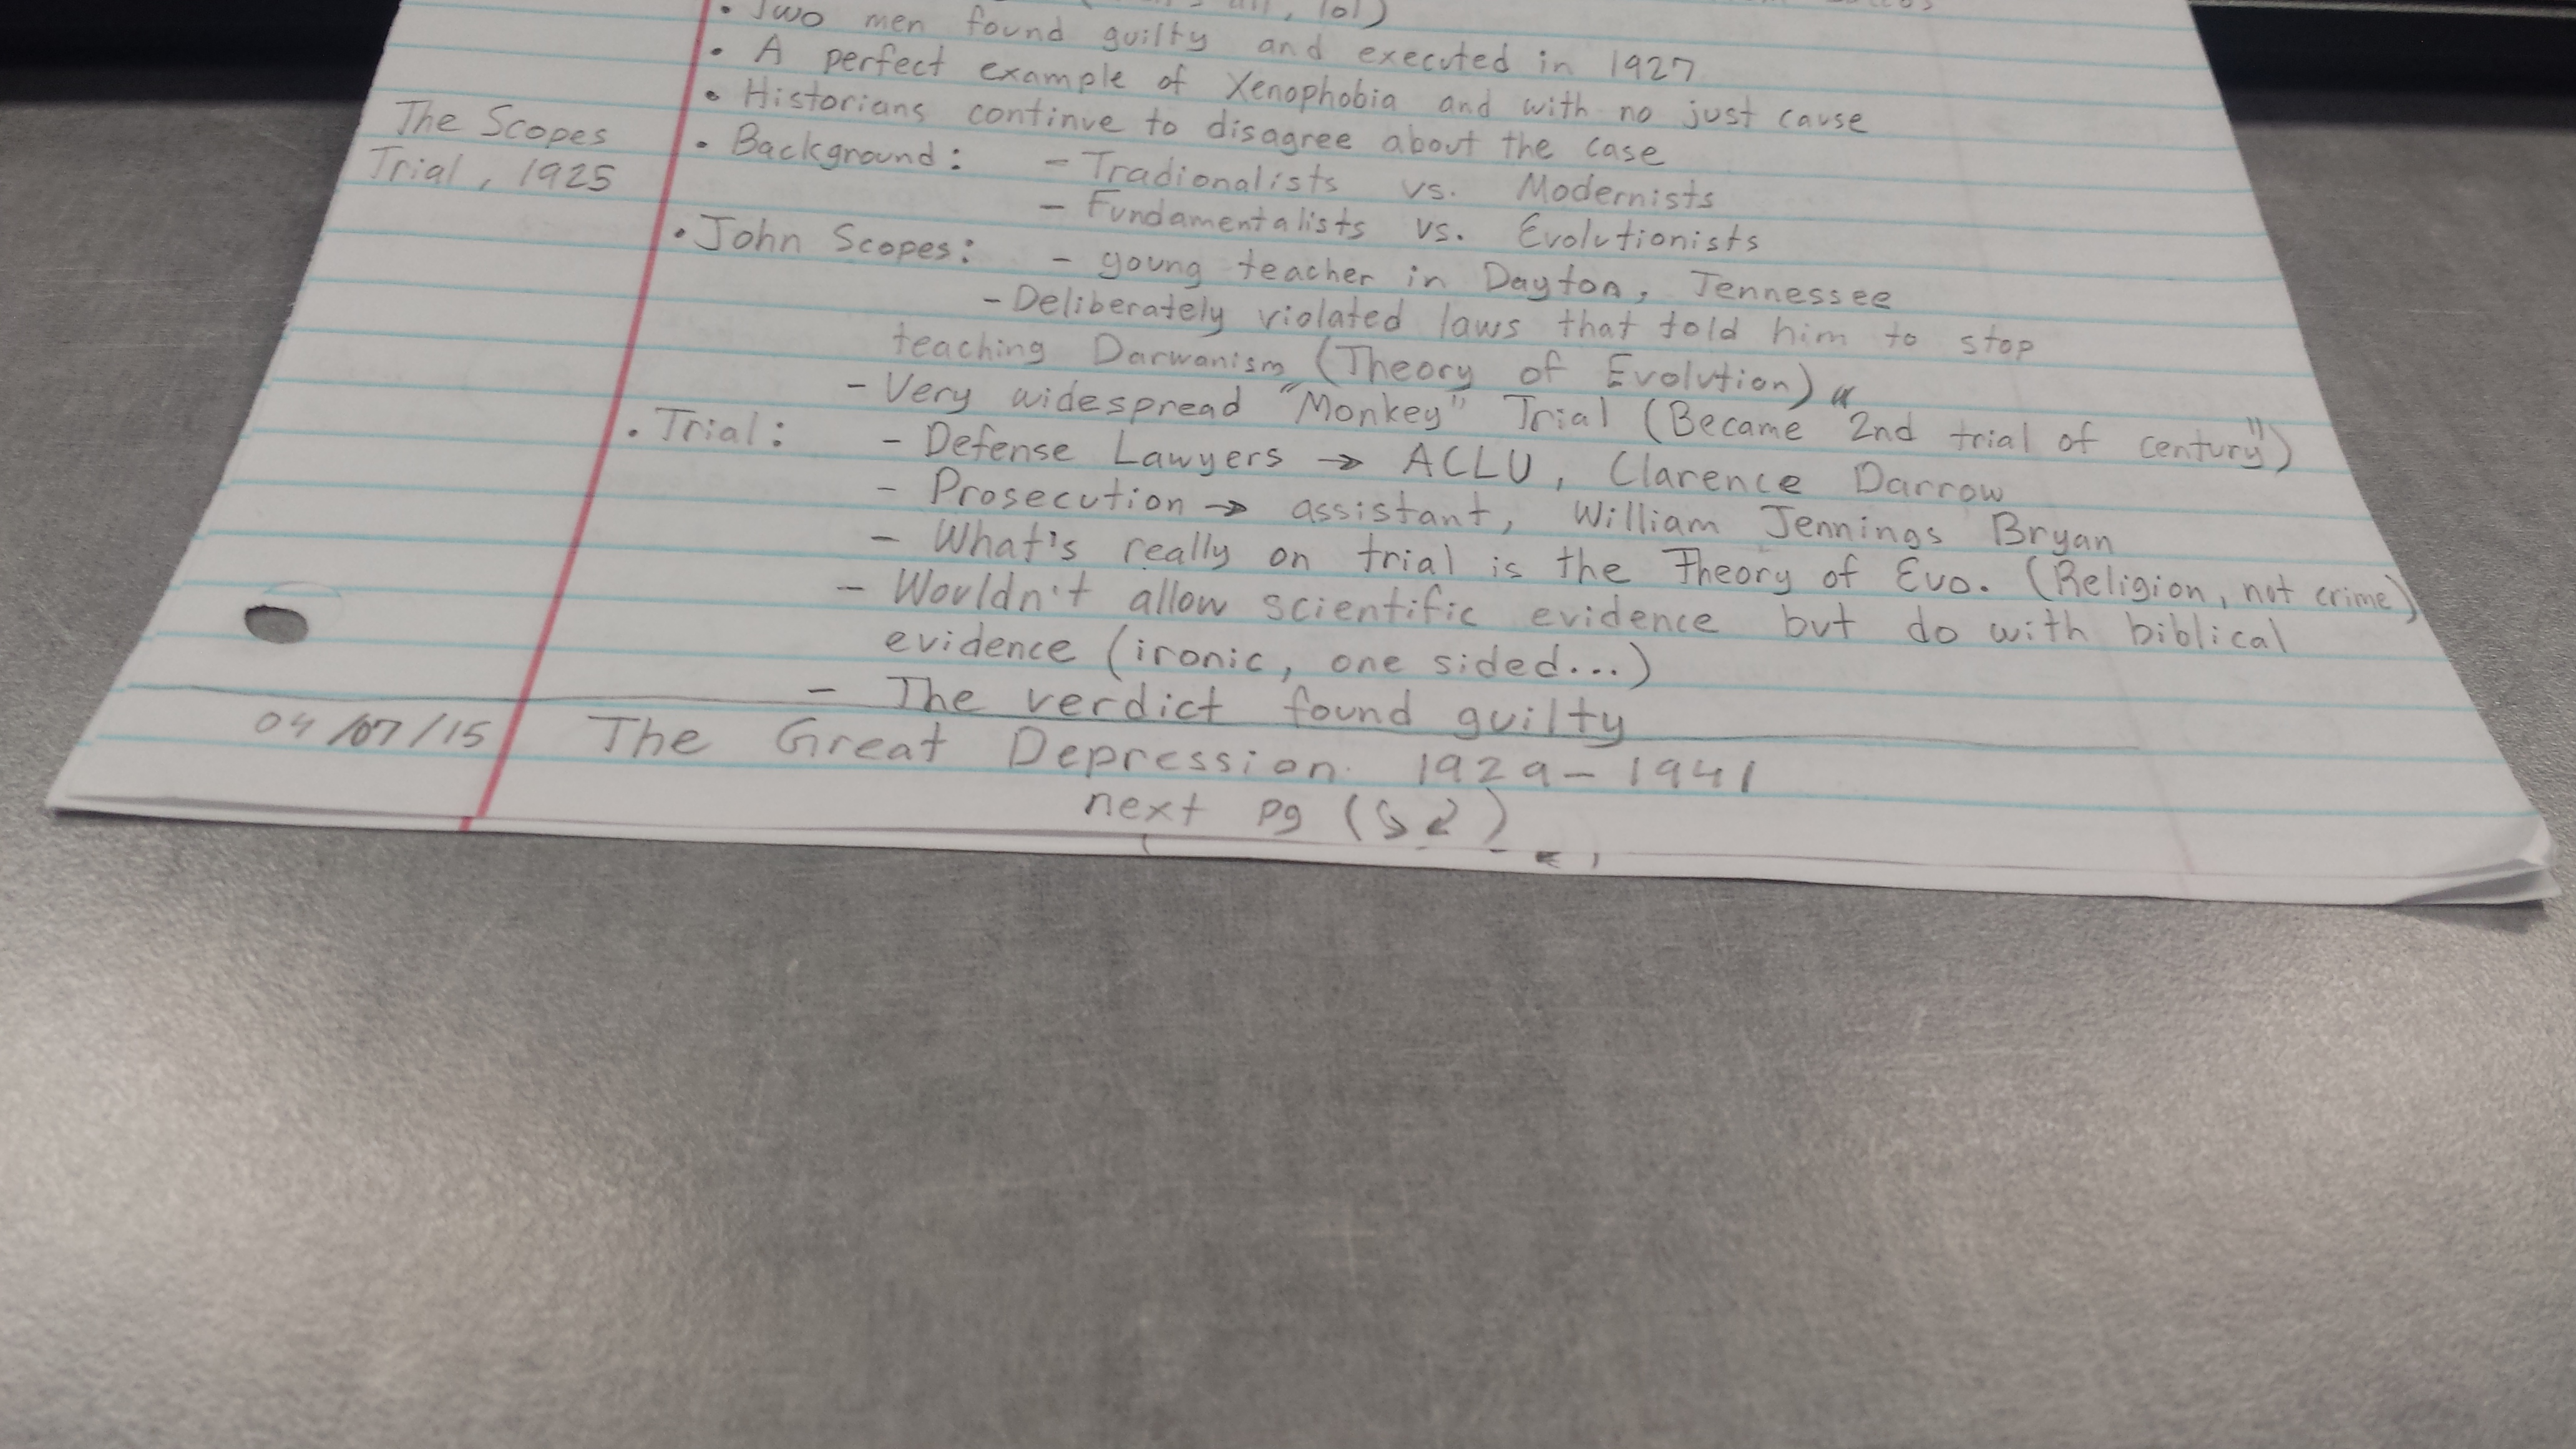 lol)
• Two men found guilty and executed in 1927
• A perfect example of Xenophobia and with no just cause
• Historians continue to disagree about the case
The Scopes
Trial, 1925
• Background: - Tradionalists vs. Modernists
- Fundamentalists vs. Evolutionists
• John Scopes: - young teacher in Dayton, Tennessee
- Deliberately violated laws that told him to stop
teaching Darwanism (Theory of Evolution)
- Very widespread "Monkey" Trial (Became "2nd trial of century")
• Trial: - Defense Lawyers → ACLU, Clarence Darrow
- Prosecution → assistant, William Jennings Bryan
- What's really on trial is the Theory of Evo. (Religion, not crime)
- Wouldn't allow scientific evidence but do with biblical
evidence (ironic, one sided...)
- The verdict found guilty
04/07/15 The Great Depression 1929-1941
next pg (↘↙)